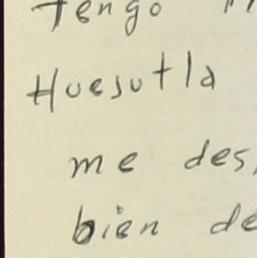 Tengo
Huesutla
me des
bien de